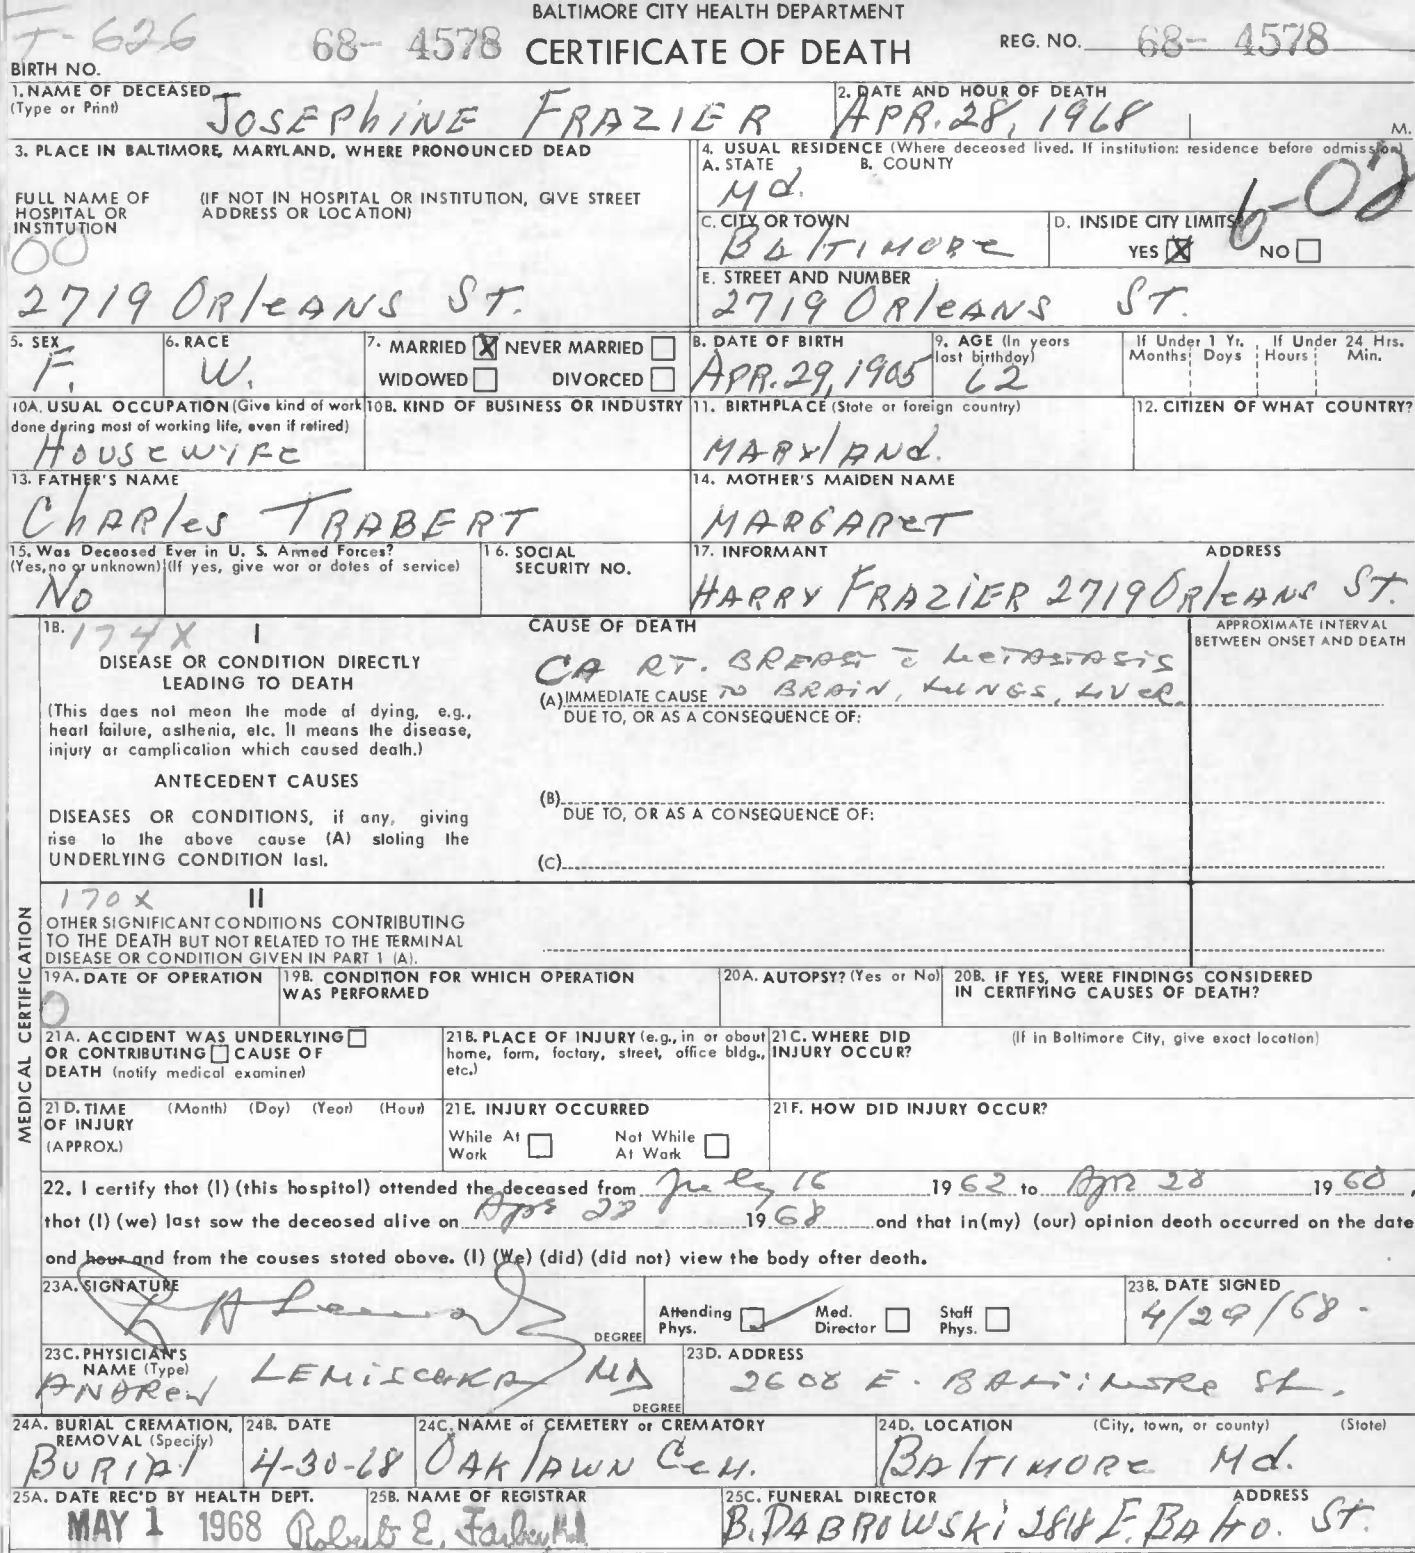 BALTIMORE CITY HEALTH DEPARTMENT
F-626 68- 4578 CERTIFICATE OF DEATH REG. NO. 68- 4578
BIRTH NO.
1. NAME OF DECEASED (Type or Print) JOSEPhiNE FRAZIER
2. DATE AND HOUR OF DEATH APR. 28, 1968 M.
3. PLACE IN BALTIMORE, MARYLAND, WHERE PRONOUNCED DEAD
FULL NAME OF HOSPITAL OR INSTITUTION
(IF NOT IN HOSPITAL OR INSTITUTION, GIVE STREET ADDRESS OR LOCATION)
00
2719 ORleANS ST.
4. USUAL RESIDENCE (Where deceased lived. If institution: residence before admission)
A. STATE Md. B. COUNTY
6-02
C. CITY OR TOWN BAlTIMORE
D. INSIDE CITY LIMITS? YES X NO
E. STREET AND NUMBER
2719 ORleANS ST.
5. SEX F.
6. RACE W.
7. MARRIED X NEVER MARRIED
WIDOWED DIVORCED
8. DATE OF BIRTH APR. 29, 1905
9. AGE (In years last birthday) 62
If Under 1 Yr. Months Days
If Under 24 Hrs. Hours Min.
10A. USUAL OCCUPATION (Give kind of work done during most of working life, even if retired)
HOUSEWIFE
10B. KIND OF BUSINESS OR INDUSTRY
11. BIRTHPLACE (State or foreign country)
MARYlANd.
12. CITIZEN OF WHAT COUNTRY?
13. FATHER'S NAME
ChARles TRABERT
14. MOTHER'S MAIDEN NAME
MARGAReT
15. Was Deceased Ever in U. S. Armed Forces?
(Yes, no or unknown) (If yes, give war or dates of service)
No
16. SOCIAL SECURITY NO.
17. INFORMANT ADDRESS
HARRY FRAZiER 2719 ORleANS ST.
MEDICAL CERTIFICATION
18. 174X I
DISEASE OR CONDITION DIRECTLY LEADING TO DEATH
(This does not mean the mode of dying, e.g., heart failure, asthenia, etc. It means the disease, injury or complication which caused death.)
ANTECEDENT CAUSES
DISEASES OR CONDITIONS, if any, giving rise to the above cause (A) stating the UNDERLYING CONDITION last.
CAUSE OF DEATH
APPROXIMATE INTERVAL BETWEEN ONSET AND DEATH
CA RT. BREAST c̄ METASTASIS
(A) IMMEDIATE CAUSE TO BRAIN, LUNGS, LIVER.
DUE TO, OR AS A CONSEQUENCE OF:
(B)
DUE TO, OR AS A CONSEQUENCE OF:
(C)
170X II
OTHER SIGNIFICANT CONDITIONS CONTRIBUTING TO THE DEATH BUT NOT RELATED TO THE TERMINAL DISEASE OR CONDITION GIVEN IN PART 1 (A).
19A. DATE OF OPERATION
0
19B. CONDITION FOR WHICH OPERATION WAS PERFORMED
20A. AUTOPSY? (Yes or No)
20B. IF YES, WERE FINDINGS CONSIDERED IN CERTIFYING CAUSES OF DEATH?
21A. ACCIDENT WAS UNDERLYING OR CONTRIBUTING CAUSE OF DEATH (notify medical examiner)
21B. PLACE OF INJURY (e.g., in or about home, farm, factory, street, office bldg., etc.)
21C. WHERE DID INJURY OCCUR? (If in Baltimore City, give exact location)
21D. TIME OF INJURY (APPROX.) (Month) (Day) (Year) (Hour)
21E. INJURY OCCURRED
While At Work Not While At Work
21F. HOW DID INJURY OCCUR?
22. I certify that (I) (this hospital) attended the deceased from July 16 1962 to Apr 28 1968,
that (I) (we) last saw the deceased alive on Apr 28 1968 and that in (my) (our) opinion death occurred on the date
and hour and from the causes stated above. (I) (We) (did) (did not) view the body after death.
23A. SIGNATURE DEGREE
Attending Phys. Med. Director Staff Phys.
23B. DATE SIGNED
4/29/68
23C. PHYSICIAN'S NAME (Type)
ANDREW LEMISCHKA MD
DEGREE
23D. ADDRESS
2608 E. BALTIMORE St.
24A. BURIAL CREMATION, REMOVAL (Specify)
BURIAl
24B. DATE
4-30-68
24C. NAME of CEMETERY or CREMATORY
OAKlAWN CeM.
24D. LOCATION (City, town, or county) (State)
BAlTIMORE Md.
25A. DATE REC'D BY HEALTH DEPT.
MAY 1 1968
25B. NAME OF REGISTRAR
Robert E. Farber, M.D.
25C. FUNERAL DIRECTOR ADDRESS
B. DABROWSKi 2818 E. BAlTO. ST.